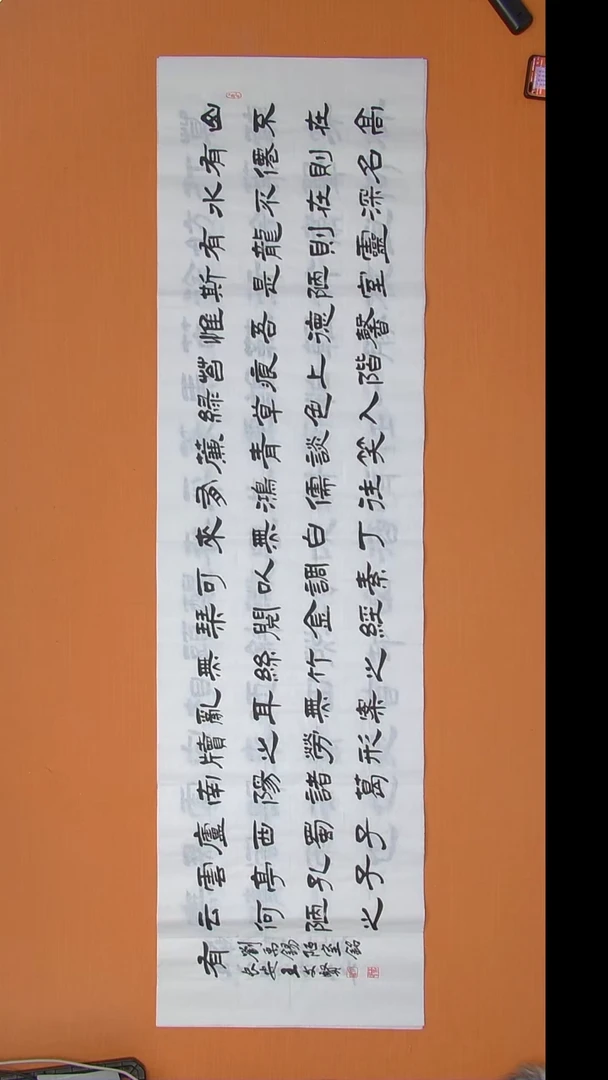 山不在高
有僊則名
水不在深
有龍則靈
斯是陋室
惟吾德馨
苔痕上階
綠草色入
簾青談笑
多鴻儒往
來無白丁
可以調素
琴閱金經
無絲竹之
亂耳無案
牘之勞形
南陽諸葛
廬西蜀子
雲亭孔子
云何陋之
有
劉禹錫陋室銘
長安王文賢